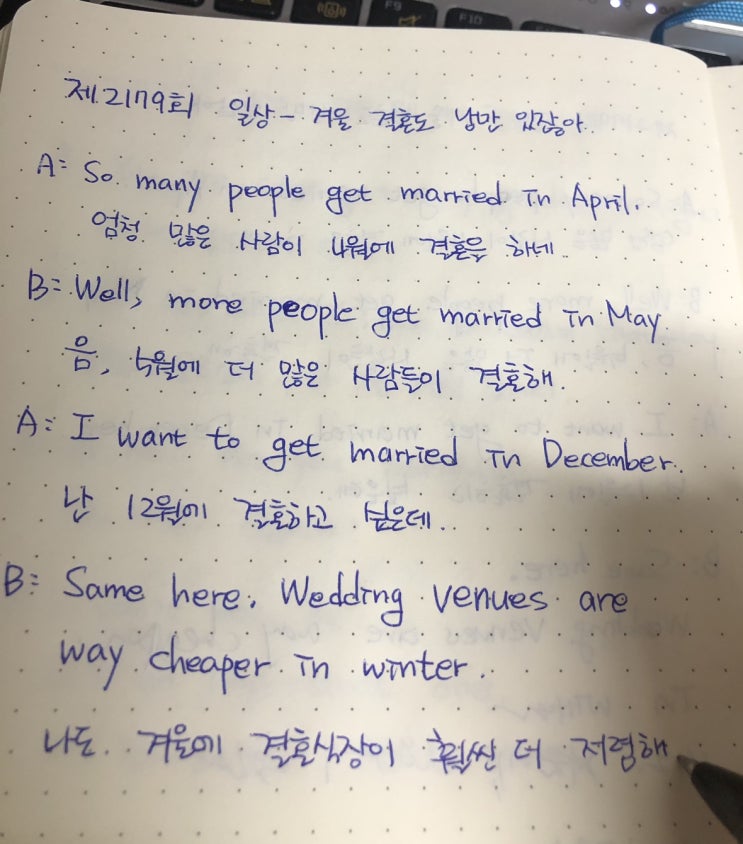 F9
F10
제2179회 일상 - 겨울 결혼도 낭만 있잖아.
A: So many people get married in April.
엄청 많은 사람이 4월에 결혼을 하네.
B: Well, more people get married in May
음, 5월에 더 많은 사람들이 결혼해.
A: I want to get married in December.
난 12월에 결혼하고 싶은데.
B: Same here. Wedding venues are
way cheaper in winter.
나도. 겨울에 결혼식장이 훨씬 더 저렴해